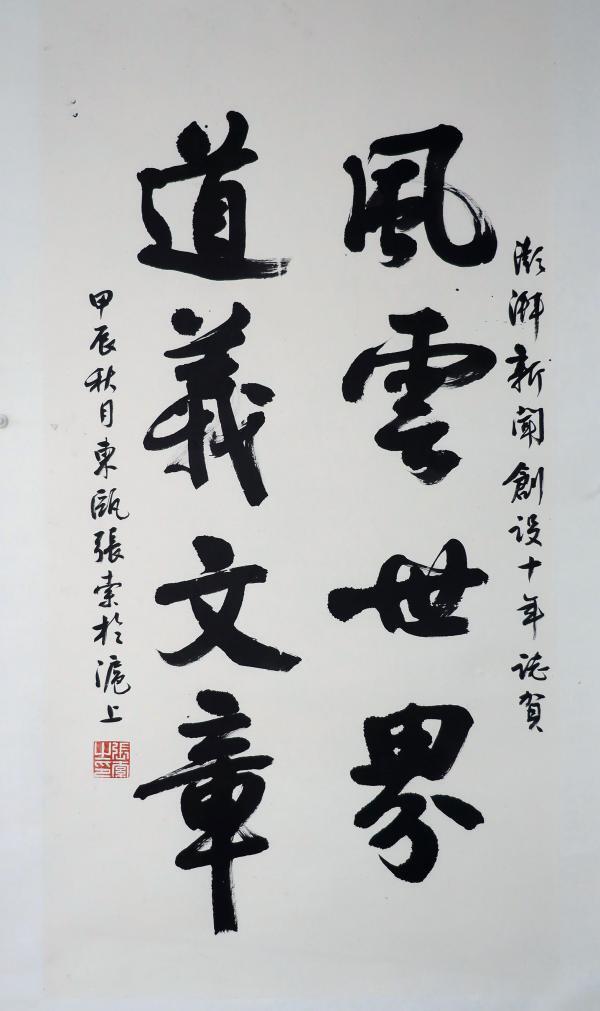 澎湃新聞創设十年誌賀
風雲世界
道義文章
甲辰秋月東甌張索於滬上
張索之印